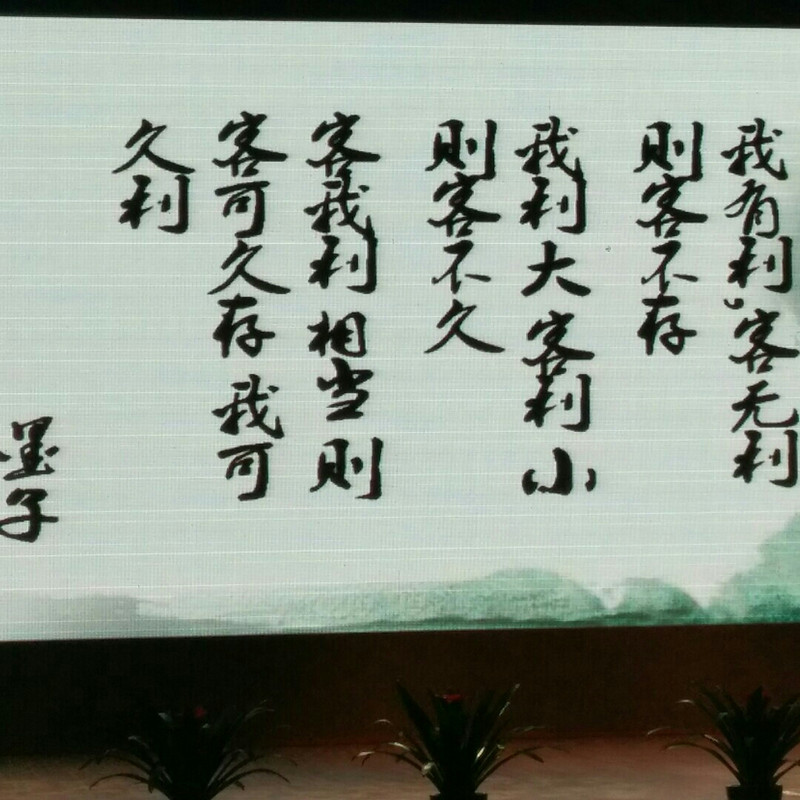 我有利，客无利
则客不存
我利大客利小
则客不久
客我利相当则
客可久存我可
久利
墨子